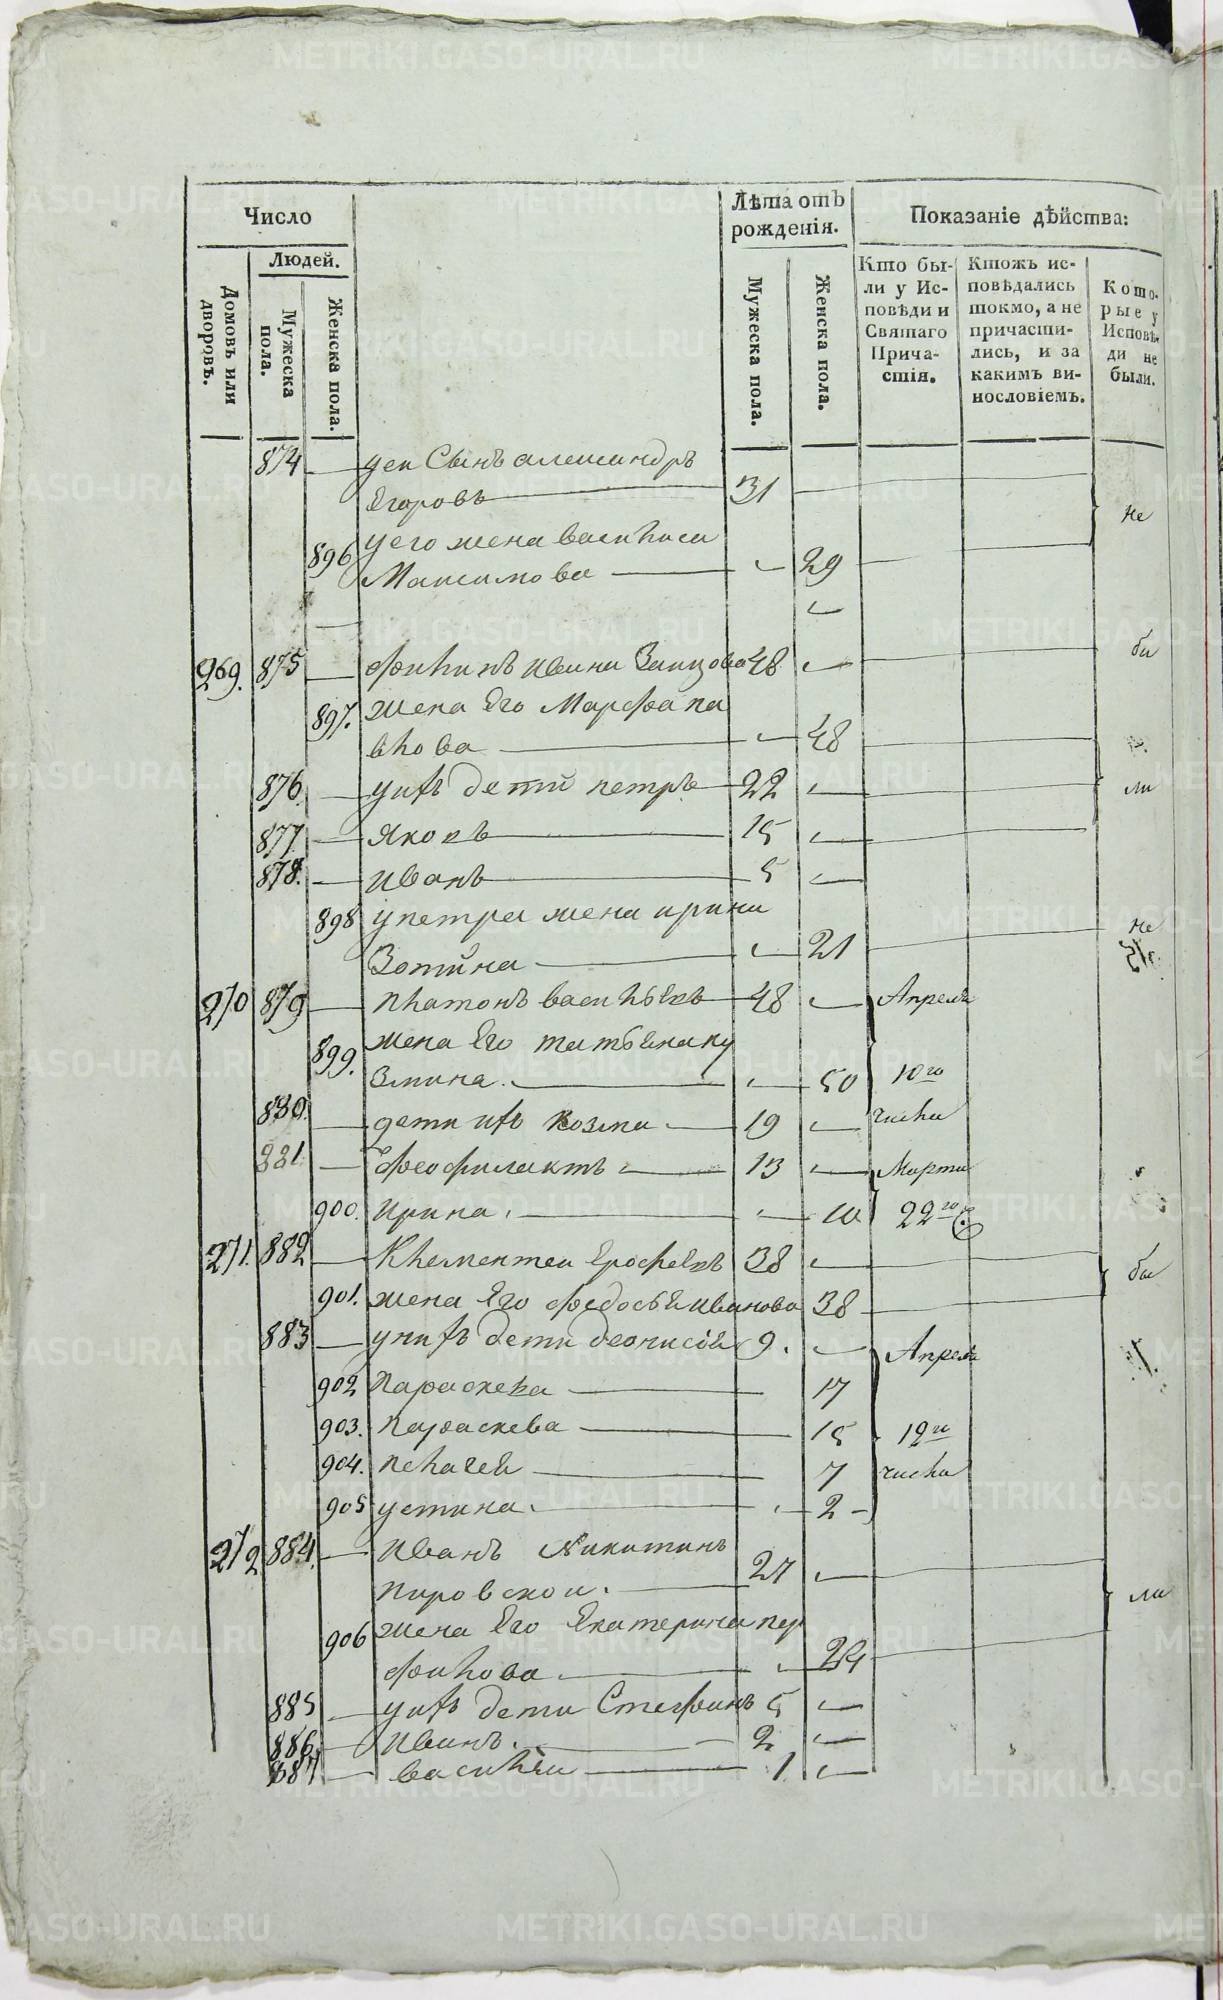 Число
Лѣта отъ рожденія.
Показаніе дѣйства:
Домовъ или дворовъ.
Людей.
Мужеска пола.
Женска пола.
Мужеска пола.
Женска пола.
Кто были у Исповѣди и Святаго Причастія.
Ктожъ исповѣдались токмо, а не причастились, и за какимъ винословіемъ.
Которые у Исповѣди не были.
874 — уеи Сынъ александръ
Егоровъ — 31
не
896 у его жена василиса
Максимова — 29
269. 875 — филипъ ивана Заицова 48
бы
897. жена Его Марфа па
влова — 48
876 — у ихъ дети петръ 22
ли
877 — Яковъ — 15
878. — иванъ — 5
898 у петра жена ирина
не
Зотина — 21
270 879 — платонъ васильевъ 48 Апреля
899. жена Его татьЕна ку
змина. — 50 10го
880. — дети ихъ козма — 19 числа
881 — феофилактъ — 13 Марта
900. ирина. — 10 22го
271. 882 — Клементеи Ерофеевъ 38
бы
901. жена Его федосьЕ иванова 38
883 — у нихъ дети деонисей 9. Апреля
902 параскева — 17
903. параскева — 15 12го
904. пелагеЕ — 7 числа
905 устина. — 2
272 884. — иванъ Никитинъ
пировскои. — 27
ли
906 жена Его Екатерина пер
филова — 24
885 — у ихъ дети Стефанъ 5
886 — иванъ. — 2
887 — василеи — 1
METRIKI.GASO-URAL.RU